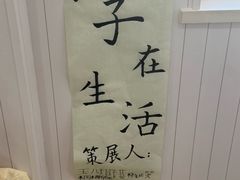 字
在
生
活
策展人：